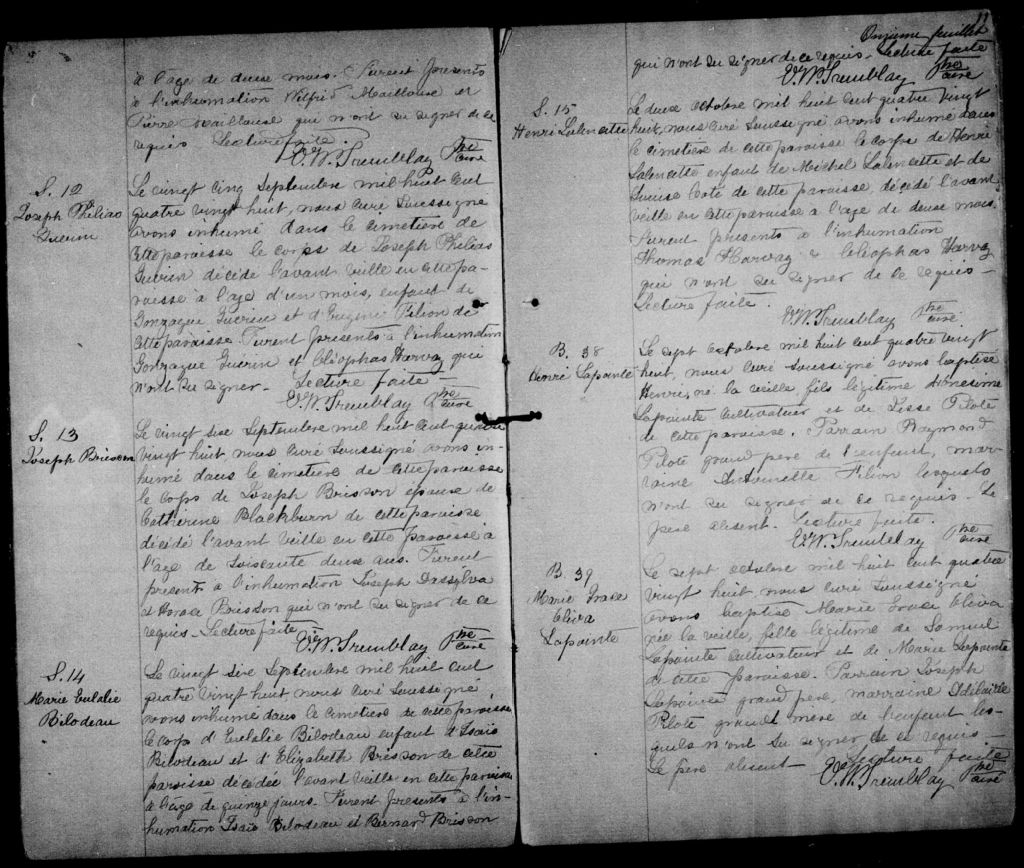 à l'age de deux mois. Furent présents
à l'inhumation Wilfrid Maillouse et
Pierre Maillouse qui n'ont su signer de ce
requis Lecture faite.
E.W. Tremblay Ptre curé
S. 12
Joseph Philias
Guerin
Le vingt cinq Septembre mil huit cent
quatre vingt huit, nous curé Soussigné
avons inhumé dans le cimetière de
cette paroisse le corps de Joseph Philias
Guérin décédé l'avant veille en cette pa-
roisse à l'age d'un mois, enfant de
Gonzague Guérin et d'Eugénie Filion de
cette paroisse. Furent présents à l'inhumation
Gonzague Guérin et Cléophas Harvay qui
n'ont su signer. Lecture faite —
E.W. Tremblay Ptre curé
S. 13
Joseph Brisson
Le vingt sixe Septembre mil huit cent quatre
vingt huit nous curé Soussigné avons in-
humé dans le cimetière de cette paroisse
le corps de Joseph Brisson épouse de
Catherine Blackburn de cette paroisse
décédé l'avant veille en cette paroisse à
l'age de Soixante deux ans. Furent
présents à l'inhumation Joseph Dassylva
et Horace Brisson qui n'ont su signer de ce
requis. Lecture faite —
E.W. Tremblay Ptre curé
S. 14
Marie Eulalie
Bilodeau
Le vingt sixe Septembre mil huit cent
quatre vingt huit nous curé Soussigné
avons inhumé dans le cimetière de cette paroisse
le corps d'Eulalie Bilodeau enfant d'Isaïe
Bilodeau et d'Elizabeth Brisson de cette
paroisse décédée l'avant veille en cette paroisse
à l'age de quinze jours. Furent présents à l'in-
humation Isaïe Bilodeau et Bernard Brisson
11
Onzieme feuillet
qui n'ont su signer de ce requis. Lecture faite
E.W. Tremblay Ptre curé
S. 15
Henri Lalencette
Le deux octobre mil huit cent quatre vingt
huit, nous curé Soussigné avons inhumé dans
le cimetière de cette paroisse le corps de Henri
Lalencette enfant de Michel Lalencette et de
Louise Coté de cette paroisse, décédé l'avant
veille en cette paroisse à l'age de deux mois.
Furent présents à l'inhumation
Thomas Harvay & Cléophas Harvay
qui n'ont su signer de ce requis —
Lecture faite.
E.W. Tremblay Ptre curé
B. 38
Henri Lapointe
Le sept octobre mil huit cent quatre vingt
huit, nous curé Soussigné avons baptisé
Henri, né la veille fils légitime d'Onesime
Lapointe Cultivateur et de Pilote
de cette paroisse. Parrain Raymond
Pilote grand père de l'enfant, mar-
raine Antoinette Filion lesquels
n'ont su signer de ce requis. Le
père absent. Lecture faite.
E.W. Tremblay Ptre curé
B. 39
Marie Grace
Eliva
Lapointe
Le sept octobre mil huit cent quatre
vingt huit, nous curé Soussigné
avons baptisé Marie Grace Eliva
née la veille, fille légitime de Samuel
Lapointe Cultivateur et de Marie Lapointe
de cette paroisse. Parrain Joseph
Lapointe grand père, marraine Adélaïde
Pilote grand mère de l'enfant les-
quels n'ont su signer de ce requis —
Le père absent Lecture faite
E.W. Tremblay Ptre curé